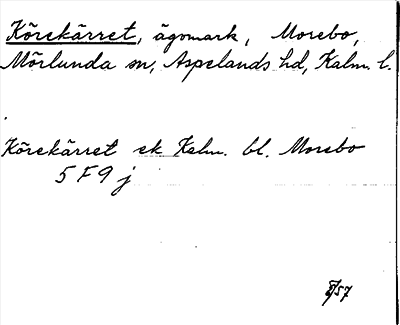 Körekärret, ägomark, Morebo,
Mörlunda sn, Aspelands hd, Kalm. l.
Körekärret ek Kalm. bl. Morebo
5 F 9 j